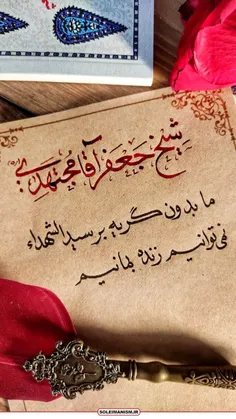 شیخ جعفر آقا مجتهدی (ره)
ما بدون گریه بر سیدالشهداء
نمی‌توانیم زنده بمانیم
SOLEIMANISM.IR